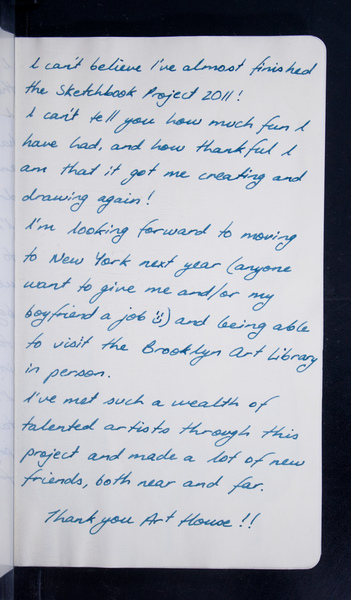 I can't believe I've almost finished
the Sketchbook Project 2011!
I can't tell you how much fun I
have had, and how thankful I
am that it got me creating and
drawing again!
I'm looking forward to moving
to New York next year (anyone
want to give me and/or my
boyfriend a job :)) and being able
to visit the Brooklyn Art Library
in person.
I've met such a wealth of
talented artists through this
project and made a lot of new
friends, both near and far.
Thank you Art House!!